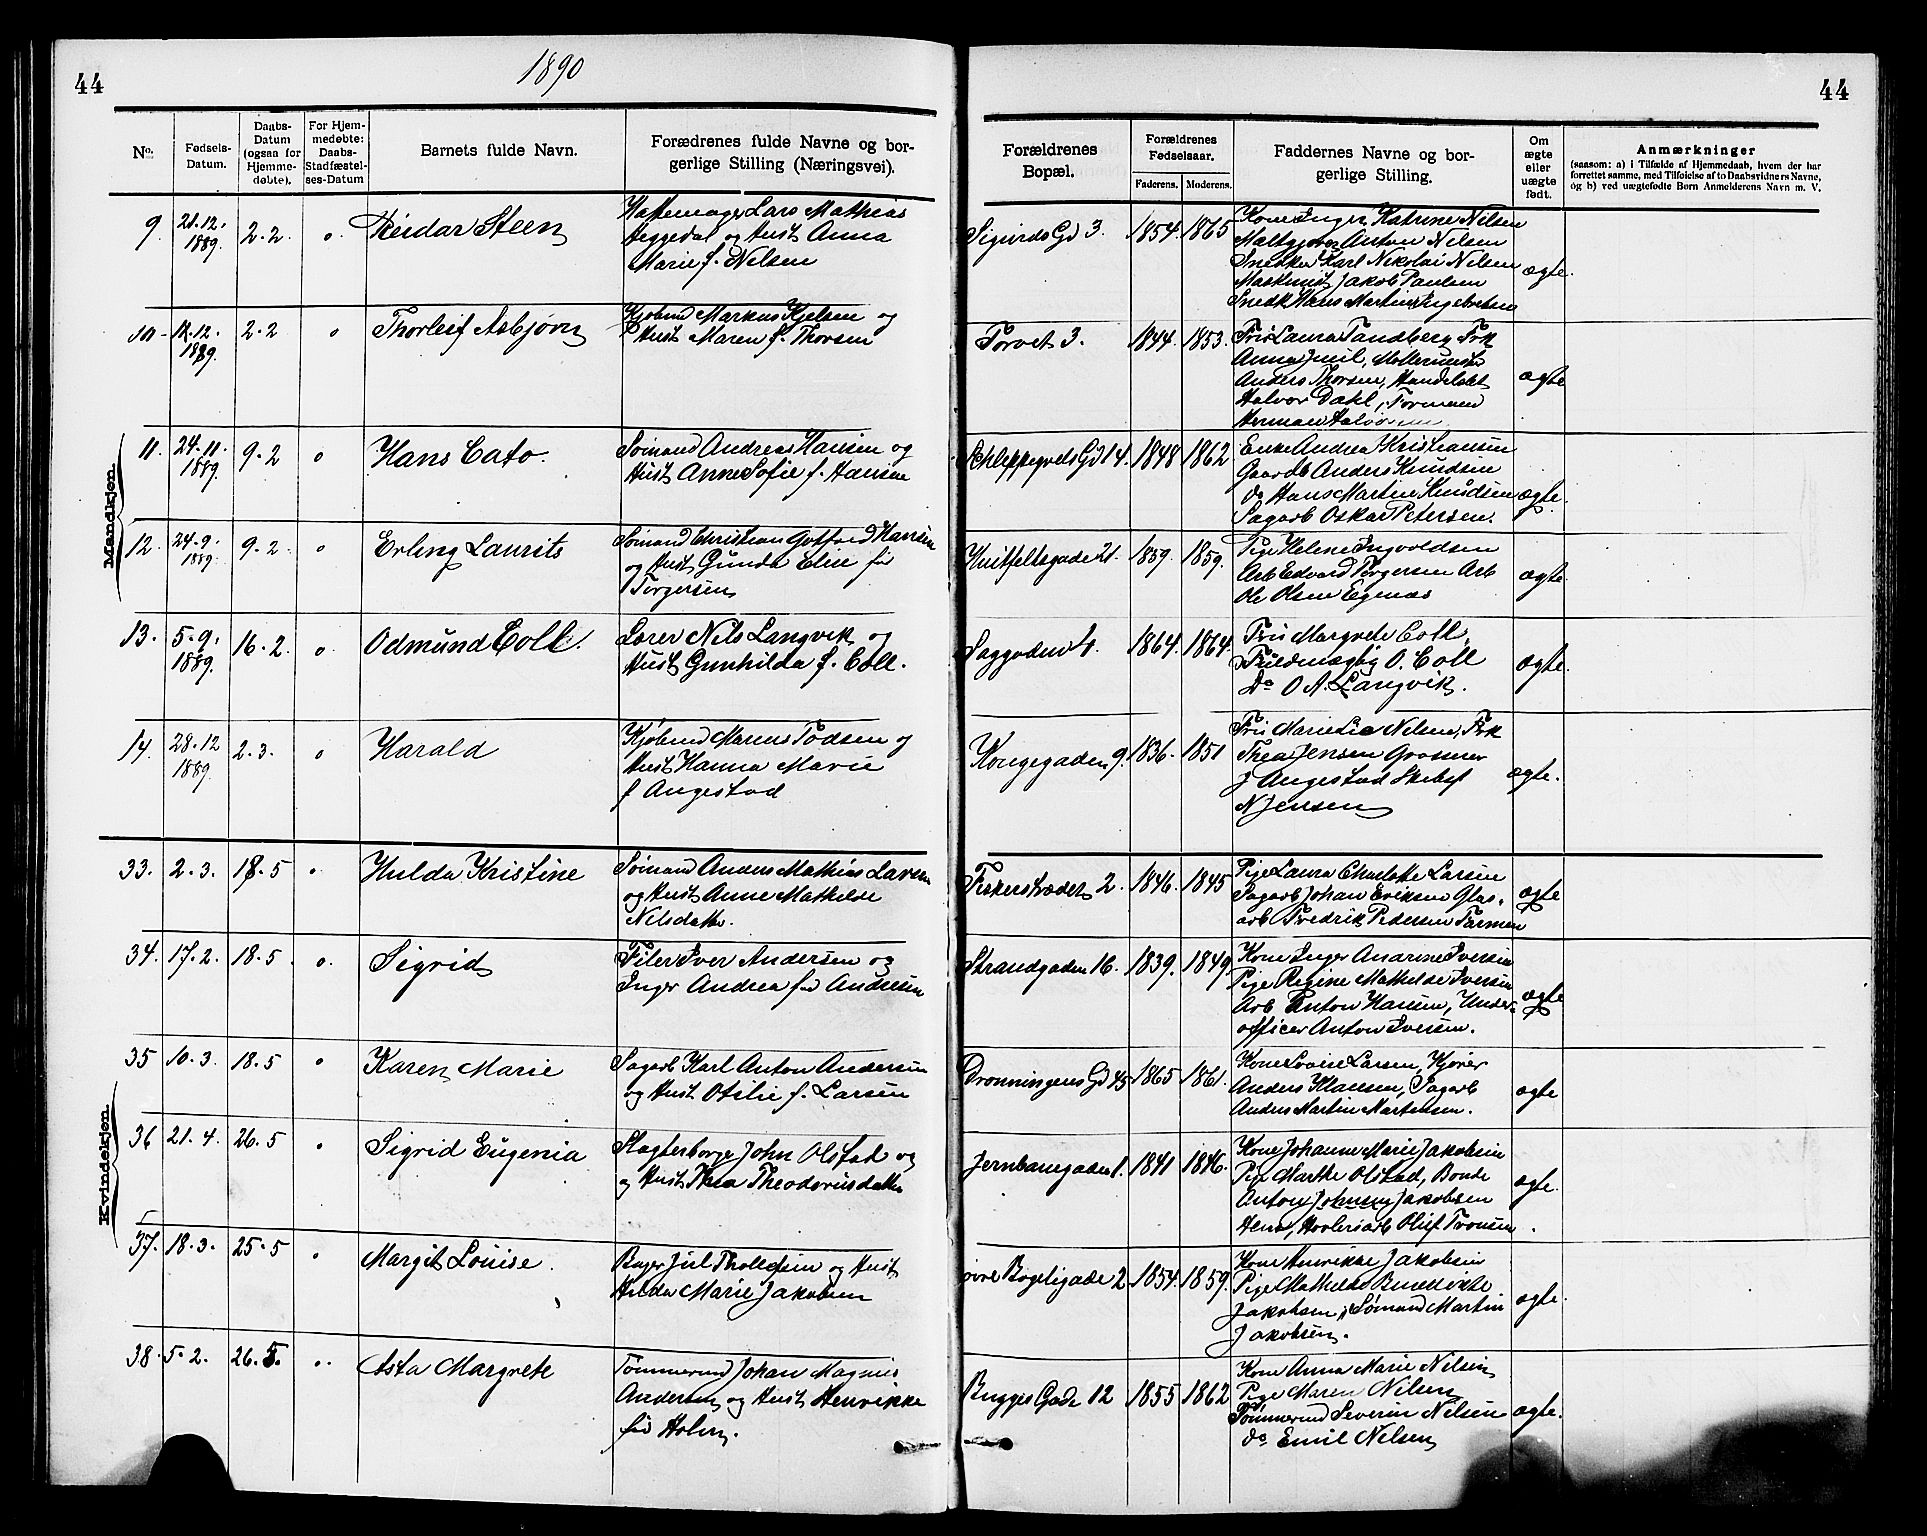 44
1890
44
No.
Fødsels-Datum.
Daabs-Datum (ogsaa for Hjemme-døbte).
For Hjem-medøbte: Daabs-Stadfæstel-ses-Datum
Barnets fulde Navn.
Forædrenes fulde Navne og bor-
gerlige Stilling (Næringsvei).
Forældrenes
Bopæl.
Forældrenes
Fødselsaar.
Faderens. Moderens.
Faddernes Navne og bor-
gerlige Stilling.
Om ægte eller uægte født.
Anmærkninger
(saasom: a) i Tilfælde af Hjemmedaab, hvem der har
forrettet samme, med Tilføielse af to Daabsvidners Navne,
og b) ved uægtefødte Børn Anmelderens Navn m. V.
Mandkjøn
9. 21.12. 1889. 2.2. o. Reidar Steen
Hattemager Lars Mathias
Heggedal og Hust Anna
Marie f. Nilsen
Sigurds Gd 3. 1854. 1865
Kone Inger Katrine Nilsen
Maltgjører Anton Nilsen
Snedker Karl Nikolai Nilsen
Maskinist Jakob Paulsen
Snedk Hans Martin Ingebretsen
ægte.
10. 12.12. 1889. 2.2 o Thorleif Asbjørn
Kjøbmd Markus Kjelsen og
Hust Maren f. Thorsen
Torvet 3. 1844. 1853.
Fru Laura Tandberg Frk
Anna Juil, Møllermester
Anders Thorsen, Handelsbet
Halvor Dahl, Formand
Herman
ægte
11. 24.11. 1889. 9.2 o Hans Cato.
Sømand Andreas Hansen og
Hust Anne Sofie f. Hansen
Schleppegrels Gd 14. 1848 1862
Enke Andrea Kristiansen
Gaardb Anders Knudsen
do Hans Martin Knudsen
Sagarb Oskar Petersen.
ægte.
12. 24.9. 1889. 9.2. o Erling Laurits
Sømand Christian Gotfred Hansen
og Hust Gunda Elise fød
Torgersen
Huitfeltsgade 21. 1859. 1859.
Pige Helene Ingvoldsen
Arb Edvard Torgersen Arb
Ole Olsen Egenæs
ægte.
13. 5.9. 1889. 16.2. o Odmund Coll.
Lærer Nils Langvik og
Hust Gunhilda f. Coll.
Saggaden 4. 1864. 1864.
Fru Margrete Coll,
Fuldmægtig O. Coll
Do O A. Langvik.
ægte.
14. 28.12 1889. 2.3. o Harald
Kjøbmd Marius Todsen og
Hust Hanna Marie
f Angestad
Kongegaden 9. 1836. 1851
Fru Marie Lie Nilsen, Frk
Thea Jensen Grosserer
J Angestad Skibsf
N Jensen
ægte.
Kvindekjøn
33. 2.3. 18.5 o Hulda Kristine
Sømand Anders Mathias Larsen
og Hust Anne Mathilde
Nilsdatter.
Fiskerstrædet 2. 1846. 1845
Pige Laura Charlotte Larsen
Sagarb Johan Eriksen Glas-
arb Fredrik Pedersen Farmen
ægte
34. 17.2. 18.5 o. Sigrid
Filer Iver Andersen og
Inger Andrea fød Andresen
Strandgaden 16. 1839. 1849.
Kone Inger Andrine Iversen
Pige Regine Mathilde Iversen
Arb Anton Hansen, Under-
officer Anton Iversen.
ægte
35 10.3. 18.5 o Karen Marie
Sagarb Karl Anton Andersen
og Hust Otilie f. Larsen
Dronningens Gd 45 1865 1861.
Kone Lovise Larsen, Kjører
Anders Klausen, Sagarb
Anders Martin Martinsen.
ægte
36 21.4. 26.5 o Sigrid Eugenia
Slagterborge John Olstad og
og Hust Thea Theodorusdatter
Jernbanegaden 1. 1841 1846.
Kone Johanne Marie Jakobsen
Pige Marthe Olstad, Bonde
Anton Johnsen Jakobsen
Høvleriarb Oluf Tronsen.
ægte.
37. 18.3. 25.5 o Margit Louise.
Bager Juel Thollefsen og Hust
Hilda Marie Jakobsen
øvre Bøgeligade 2 1854. 1859.
Kone Henrikke Jakobsen
Pige Mathilde Benedikte
Jakobsen, Sømand Martin
Jakobsen.
ægte.
38. 5.2. 26.5. Asta Margrete
Tømmermd Johan Magnus
Andersen og Hust Henrikke
fød Holm.
Bugges Gade 12 1855 1862
Kone Anna Marie Nilsen
Pige Maren Nilsen
Tømmermd Severin Nilsen
do Emil Nilsen
ægte.